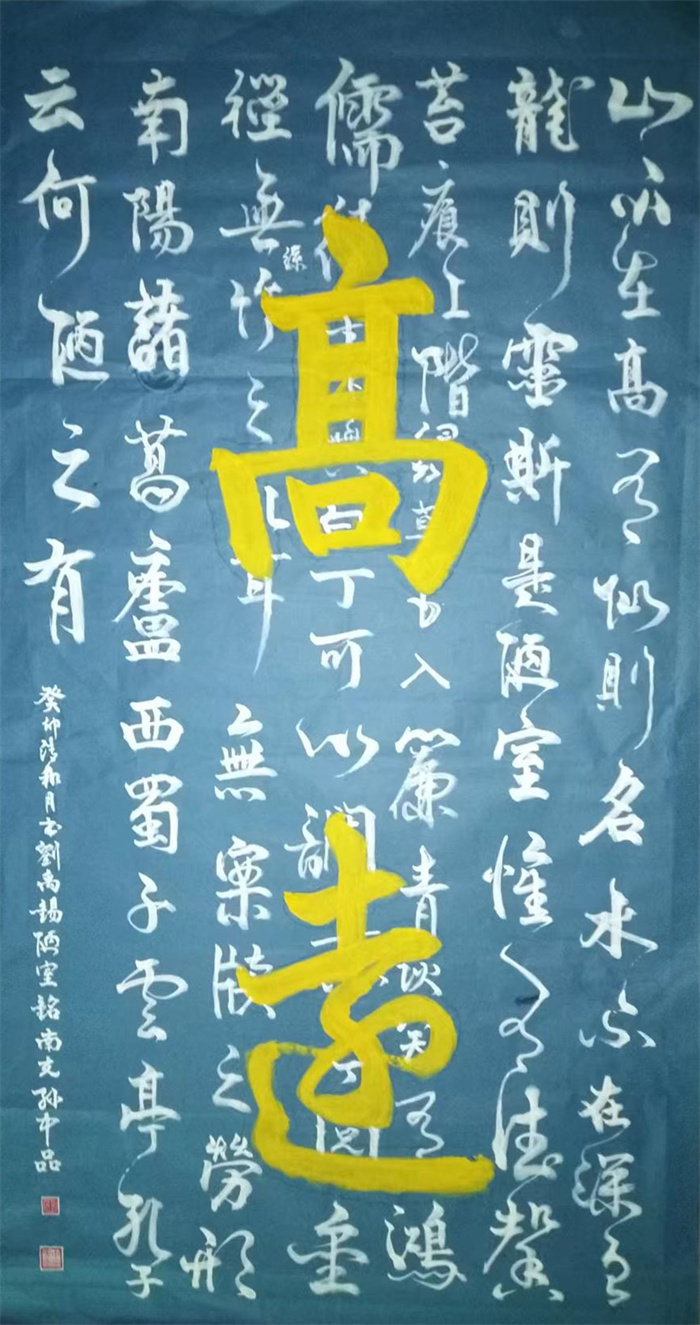 山不在高有仙則名水不在深有
龍則靈斯是陋室惟吾德馨
苔痕上階緑草入簾青談笑有鴻
儒白丁可以調閱金
經無竹之耳無案牘之勞形
南陽諸葛廬西蜀子雲亭孔子
云何陋之有
癸卯清和月書劉禹錫陋室銘南充孫中品
高遠